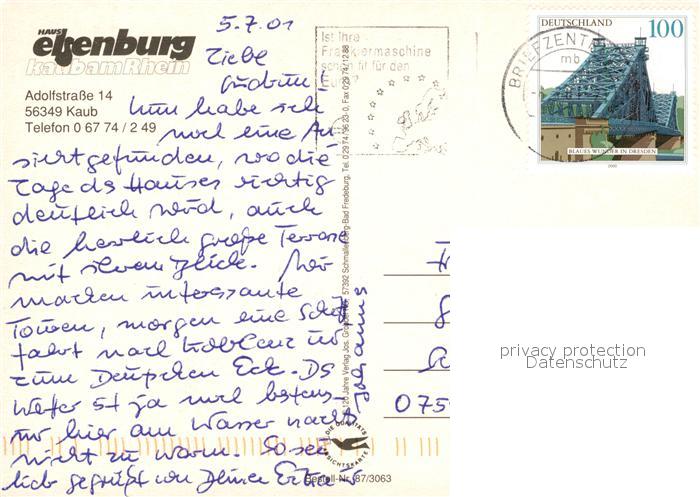 HAUS
elsenburg
kaub am Rhein
Adolfstraße 14
56349 Kaub
Telefon 0 67 74 / 2 49
5.7.01
Liebe
Gudrun!
Nun habe ich
noch eine An
sicht gefunden, wo die
Lage des Hauses richtig
deutlich wird, auch
die herrlich große Terrasse
mit ihrem Blick. Wir
machen interessante
Touren, morgen eine Schiff
fahrt nach Koblenz
zum Deutschen Eck. Das
Wetter ist ja noch bestens
nur hier am Wasser nachts
nicht zu warm. So sei
lieb gegrüßt von Deiner Erika
Johannes
Ist Ihre
Frankiermaschine
schon fit für den
Euro?
BRIEFZENT
mb
DEUTSCHLAND 100
BLAUES WUNDER IN DRESDEN
2000
120 Jahre Verlag Jos. 57392 Schmallenberg-Bad Fredeburg, Tel. 0 29 74/96 23-0, Fax 0 29 74/12 88
075
privacy protection
Datenschutz
DIE QUALITÄTS
ANSICHTSKARTE
Bestell-Nr. 87/3063